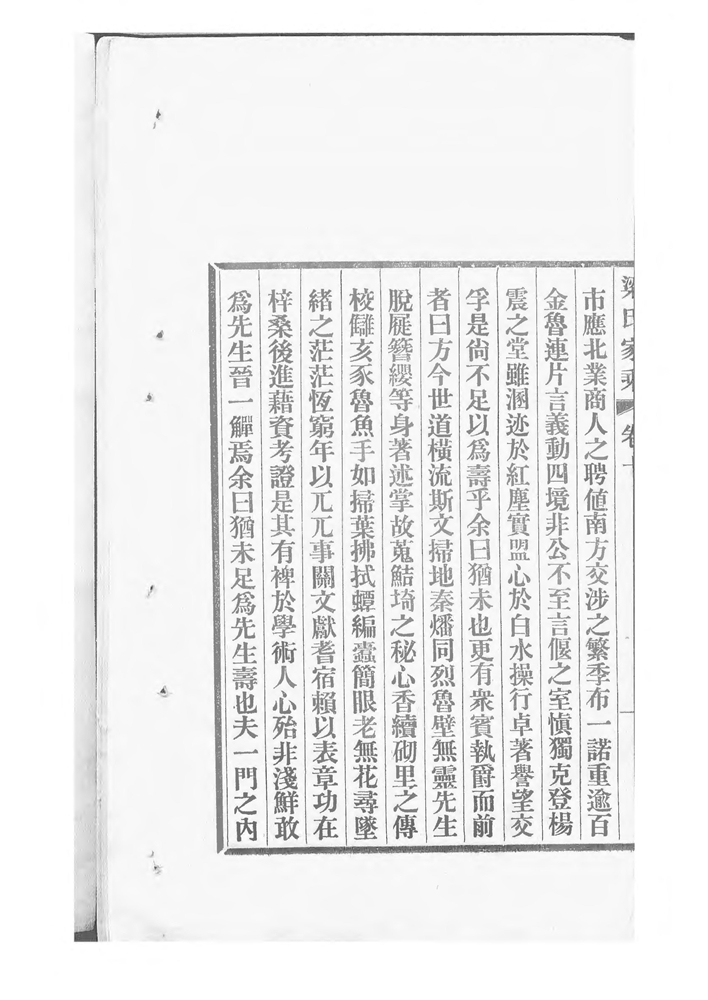 梁氏家乘 卷十
市應北業商人之聘値南方交涉之繁季布一諾重逾百
金魯連片言義動四境非公不至言偃之室愼獨克登楊
震之堂雖溷迹於紅塵實盟心於白水操行卓著譽望交
孚是尙不足以爲壽乎余曰猶未也更有衆賓執爵而前
者曰方今世道橫流斯文掃地秦燔同烈魯壁無靈先生
脫屣簪纓等身著述掌故蒐鮚埼之秘心香續砌里之傳
校讎亥豕魯魚手如掃葉拂拭蟫編蠹簡眼老無花尋墜
緒之茫茫恆窮年以兀兀事關文獻耆宿賴以表章功在
梓桑後進藉資考證是其有裨於學術人心殆非淺鮮敢
爲先生晉一觶焉余曰猶未足爲先生壽也夫一門之內